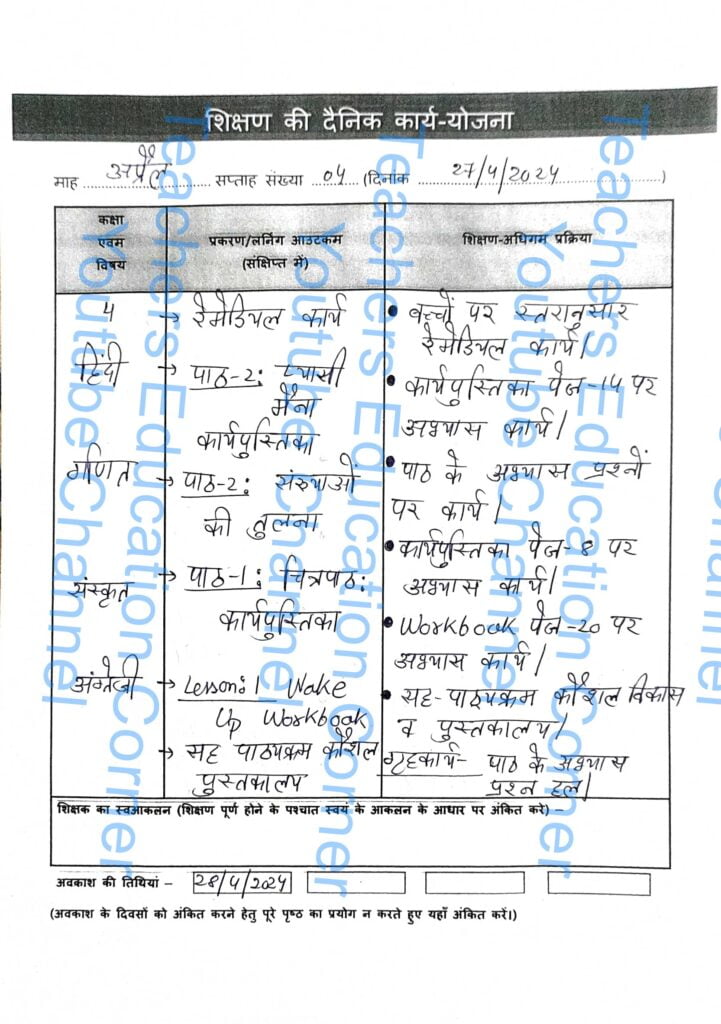 शिक्षण की दैनिक कार्य-योजना
माह अप्रैल सप्ताह संख्या 04 (दिनांक 27/4/2024)
कक्षा एवम विषय
प्रकरण/लर्निंग आउटकम (संक्षिप्त में)
शिक्षण-अधिगम प्रक्रिया
4 → रेमेडियल कार्य
• बच्चों पर स्तरानुसार
रेमेडियल कार्य।
हिंदी → पाठ-2: प्यासी
मैना
कार्यपुस्तिका
• कार्यपुस्तिका पेज-14 पर
अभ्यास कार्य।
गणित → पाठ-2: संख्याओं
की तुलना
• पाठ के अभ्यास प्रश्नों
पर कार्य।
संस्कृत → पाठ-1: चित्रपाठ:
कार्यपुस्तिका
• कार्यपुस्तिका पेज-8 पर
अभ्यास कार्य।
अंग्रेजी → Lesson: 1 Wake
Up Workbook
• Workbook पेज-20 पर
अभ्यास कार्य।
→ सह पाठ्यक्रम कौशल
पुस्तकालय
• सह-पाठ्यक्रम कौशल विकास
व पुस्तकालय।
गृहकार्य- पाठ के अभ्यास
प्रश्न हल।
शिक्षक का स्वआकलन (शिक्षण पूर्ण होने के पश्चात स्वयं के आकलन के आधार पर अंकित करे) –
अवकाश की तिथियां – 28/4/2024
(अवकाश के दिवसों को अंकित करने हेतु पूरे पृष्ठ का प्रयोग न करते हुए यहाँ अंकित करें।)
Teachers Education Corner
Youtube Channel
Teachers Education Corner
Youtube Channel
Teachers Education Corner
Youtube Channel